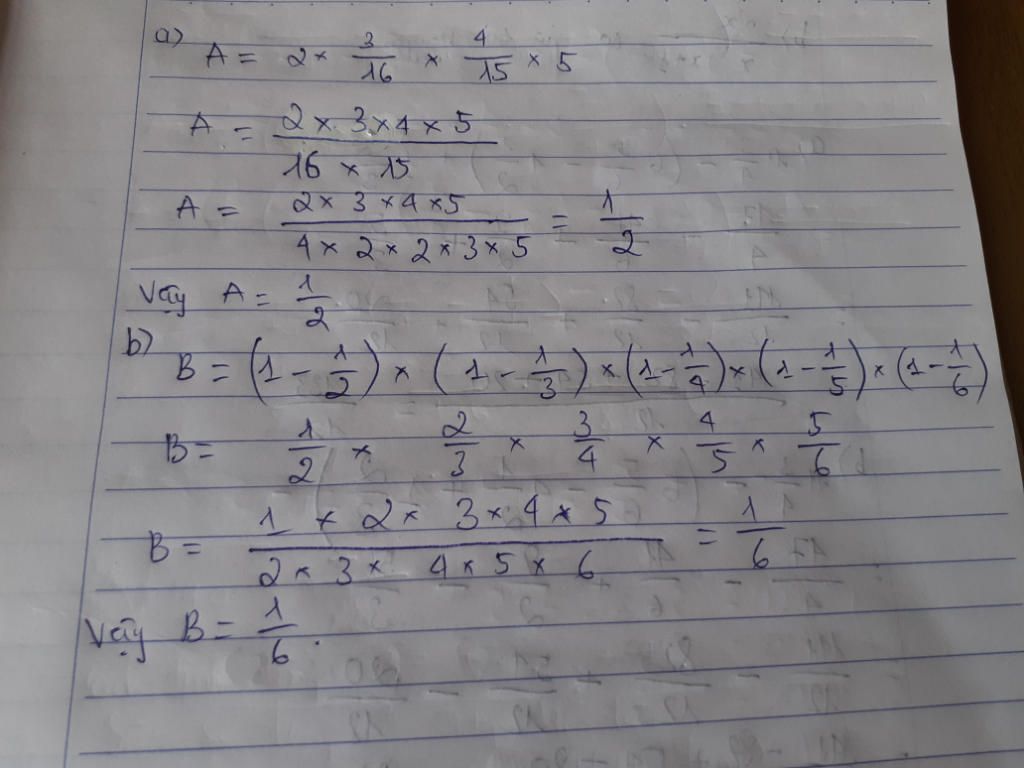 a) A = 2 × 3/16 × 4/15 × 5
A = (2 × 3 × 4 × 5)/(16 × 15)
A = (2 × 3 × 4 × 5)/(4 × 2 × 2 × 3 × 5) = 1/2
Vậy A = 1/2
b) B = (1 - 1/2) × (1 - 1/3) × (1 - 1/4) × (1 - 1/5) × (1 - 1/6)
B = 1/2 × 2/3 × 3/4 × 4/5 × 5/6
B = (1 × 2 × 3 × 4 × 5)/(2 × 3 × 4 × 5 × 6) = 1/6
Vậy B = 1/6.